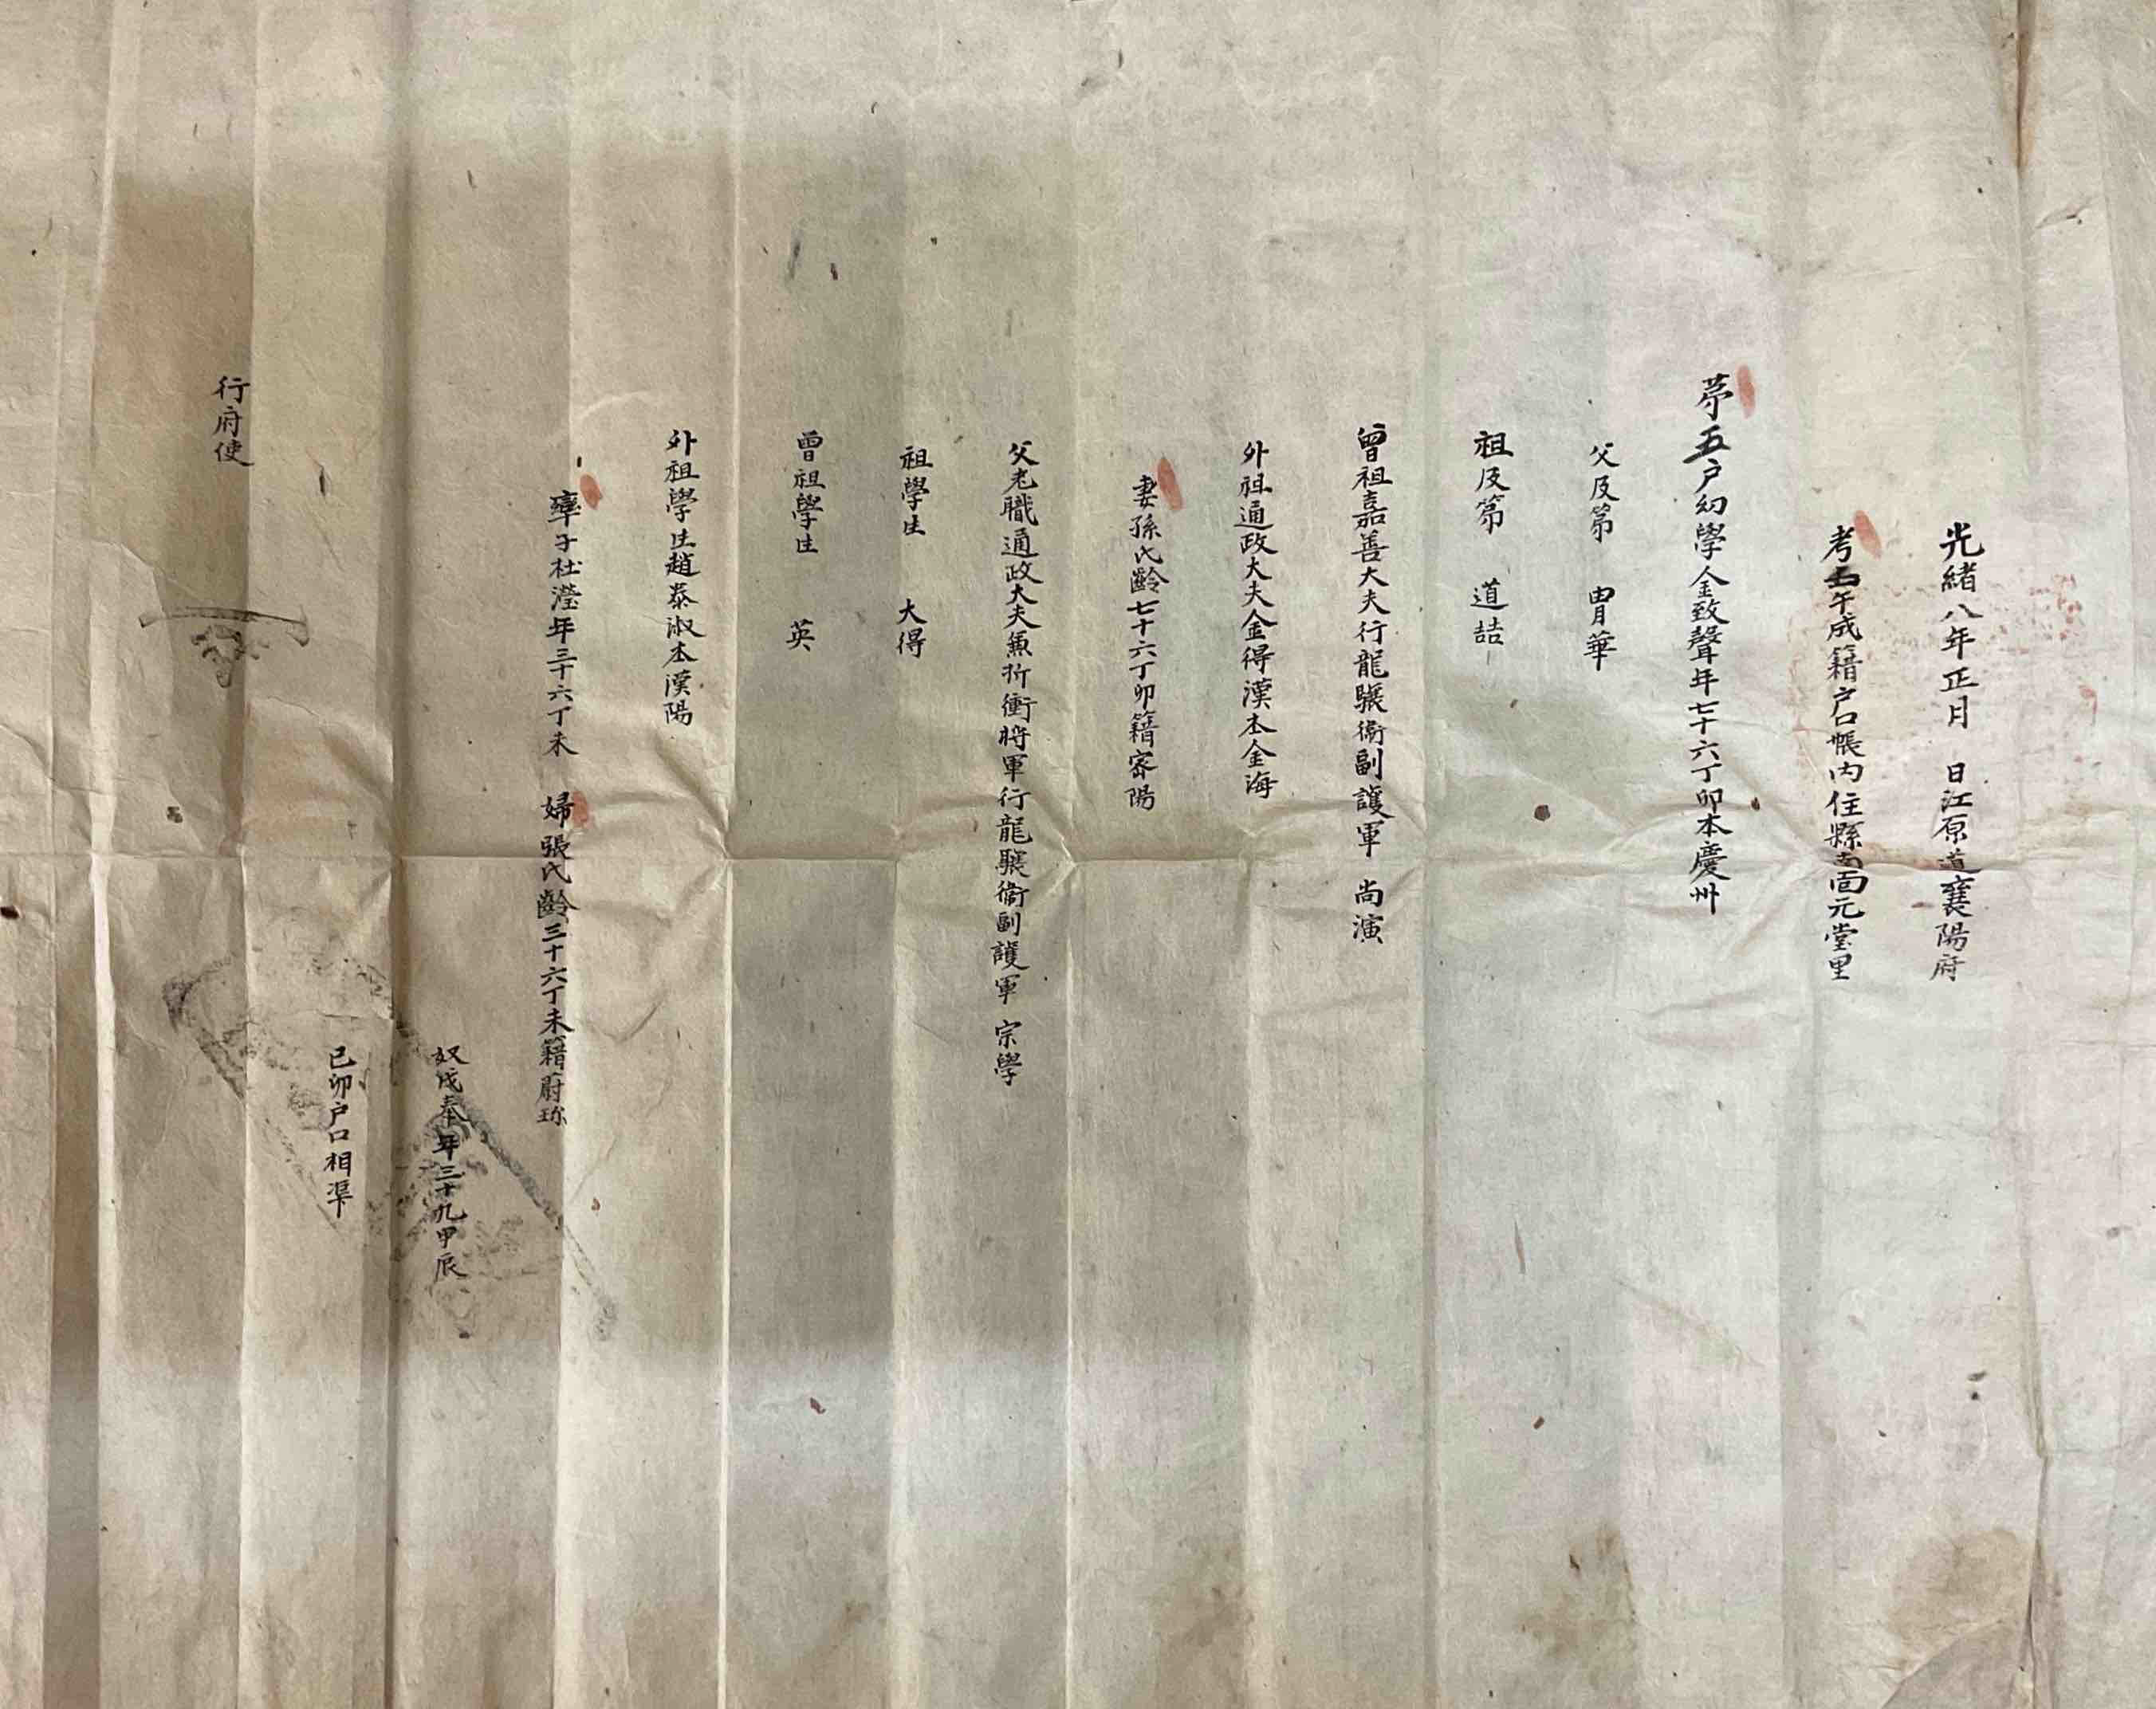 光緖八年正月 日江原道襄陽府
考壬午成籍户口帳內住縣南面元堂里
苐五户幼學金致聲年七十六丁卯本慶州
父及第 胄華
祖及第 道喆
曾祖嘉善大夫行龍驤衛副護軍 尚演
外祖通政大夫金得漢本金海
妻孫氏齡七十六丁卯籍密陽
父老職通政大夫兼折衝將軍行龍驤衛副護軍 宗學
祖學生 大得
曾祖學生 英
外祖學生趙泰淑本漢陽
率子杜瀅年三十六丁未 婦張氏齡三十六丁未籍蔚珎
奴戌奉年三十九甲辰
己卯户口相凖
行府使